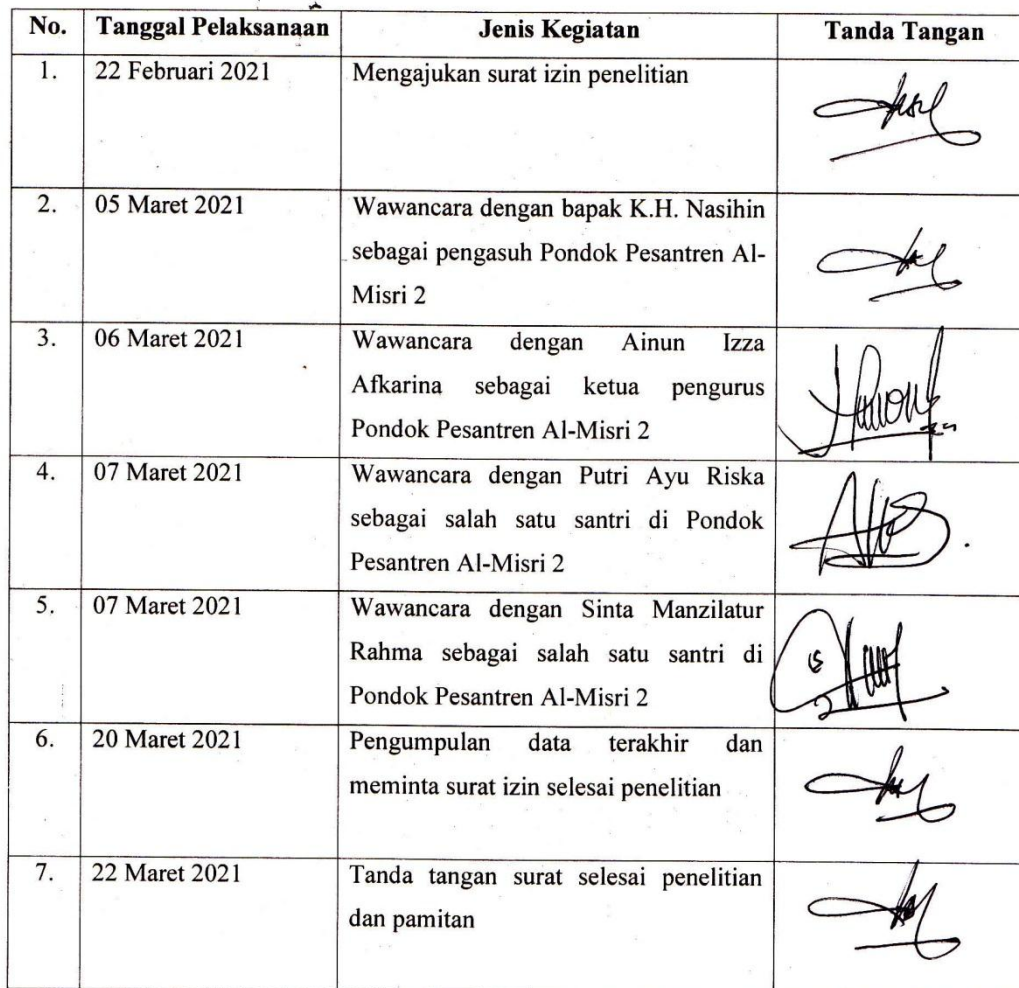 No. Tanggal Pelaksanaan Jenis Kegiatan Tanda Tangan
1. 22 Februari 2021 Mengajukan surat izin penelitian
2. 05 Maret 2021 Wawancara dengan bapak K.H. Nasihin
sebagai pengasuh Pondok Pesantren Al-
Misri 2
3. 06 Maret 2021 Wawancara dengan Ainun Izza
Afkarina sebagai ketua pengurus
Pondok Pesantren Al-Misri 2
4. 07 Maret 2021 Wawancara dengan Putri Ayu Riska
sebagai salah satu santri di Pondok
Pesantren Al-Misri 2
5. 07 Maret 2021 Wawancara dengan Sinta Manzilatur
Rahma sebagai salah satu santri di
Pondok Pesantren Al-Misri 2
6. 20 Maret 2021 Pengumpulan data terakhir dan
meminta surat izin selesai penelitian
7. 22 Maret 2021 Tanda tangan surat selesai penelitian
dan pamitan